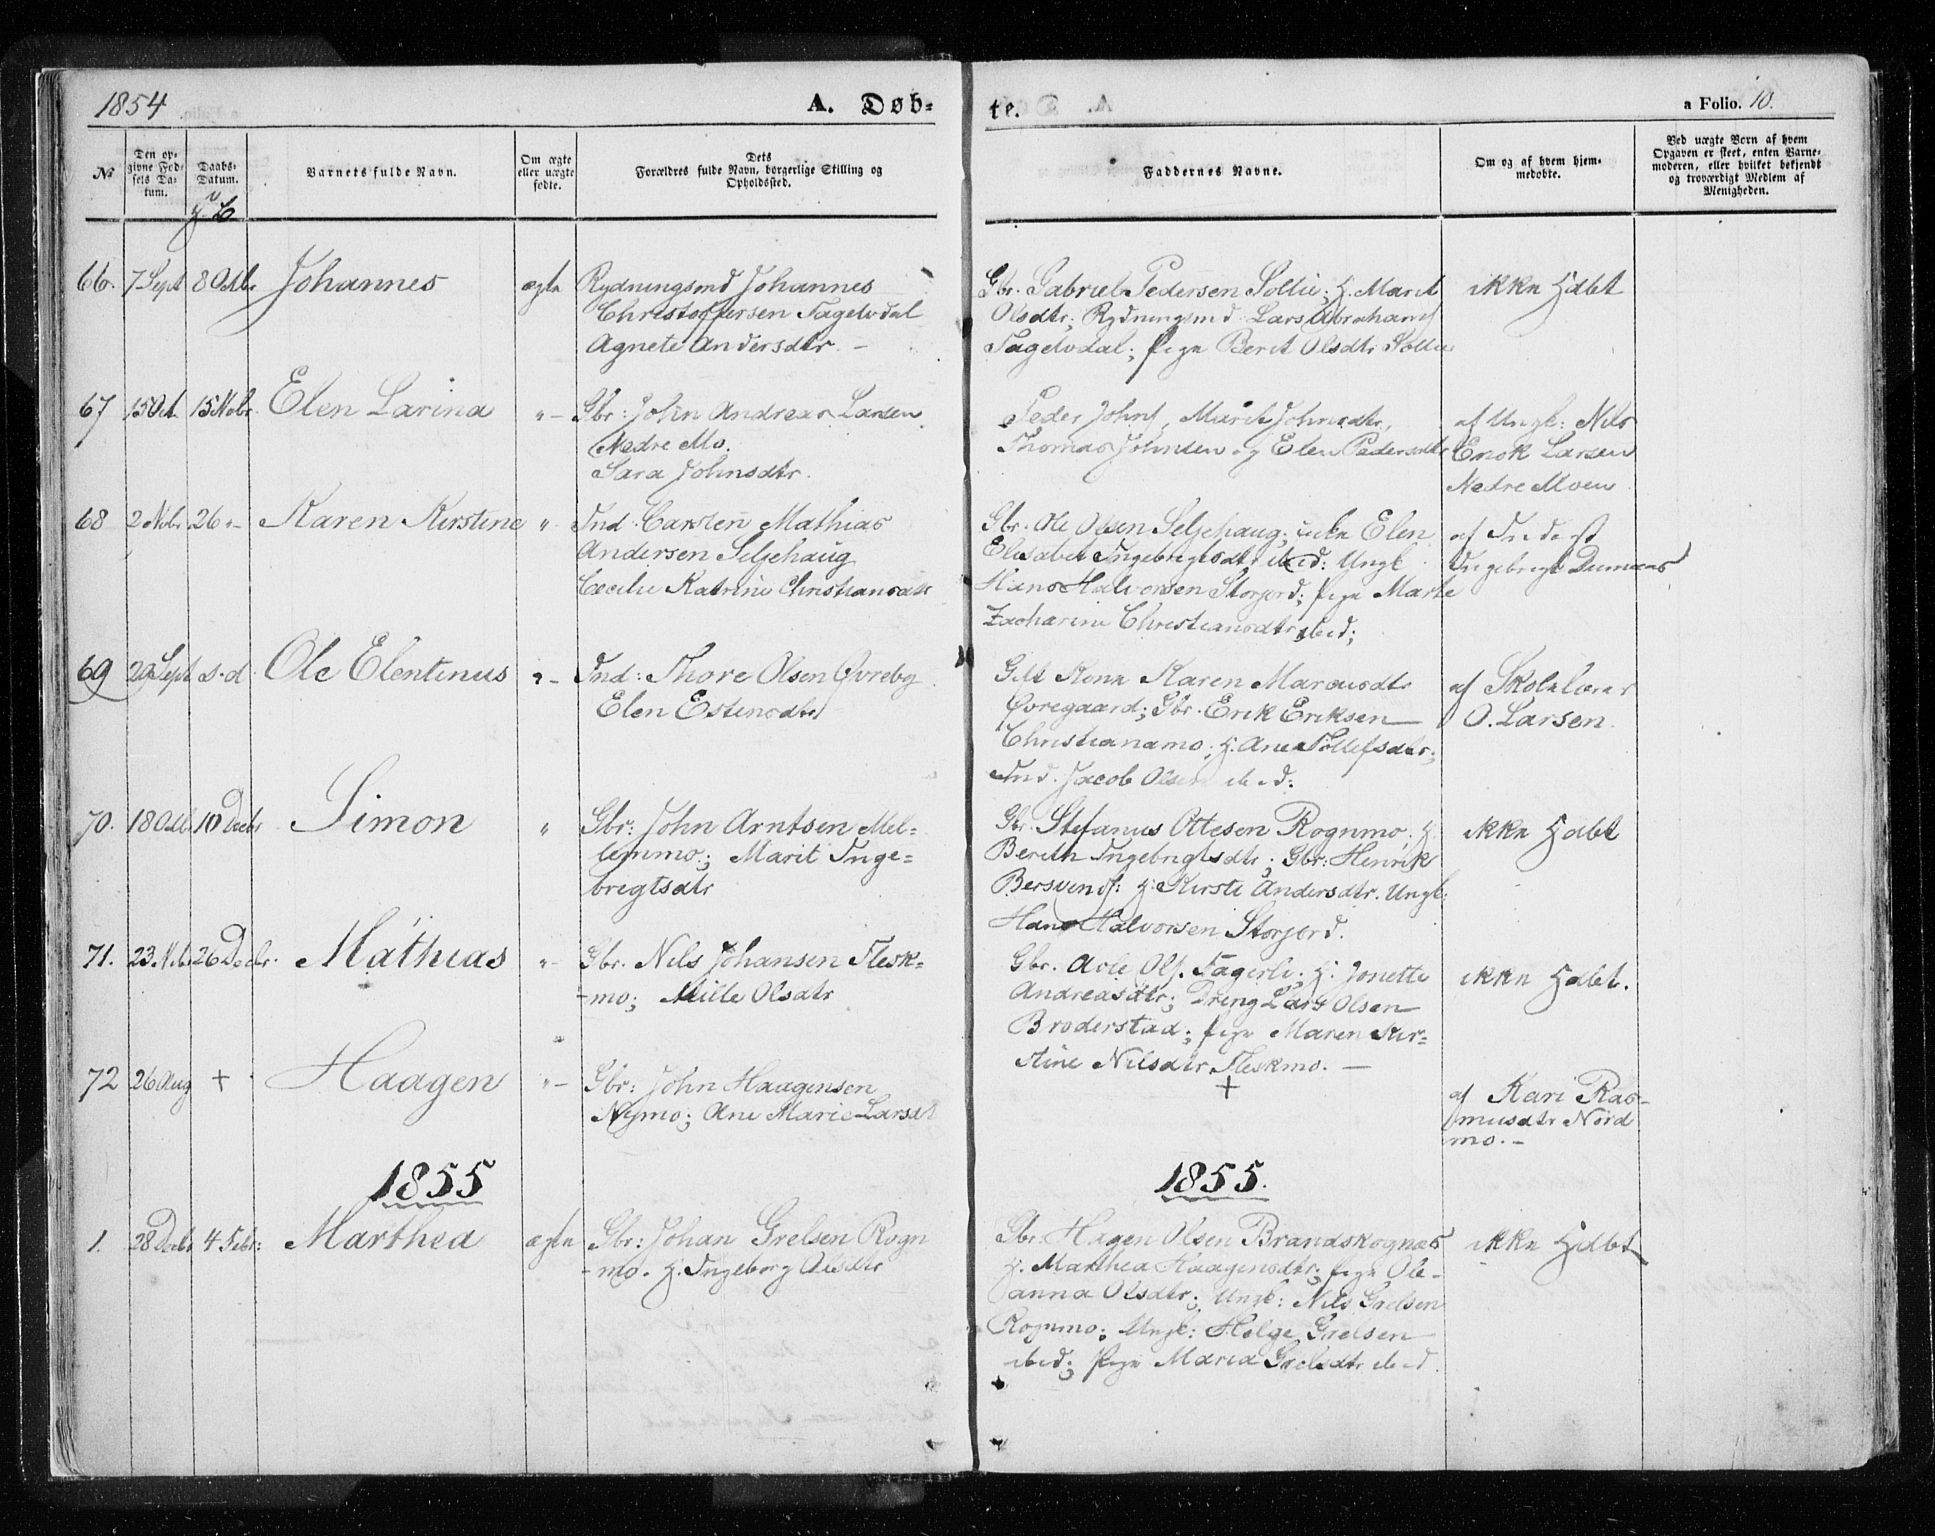 1854
A. Døb-
te.
a Folio. 10.
№
Den op-
givne Fød-
sels Da-
tum.
Daabs-
Datum.
Barnets fulde Navn.
Om ægte
eller uægte
fødte.
Dets
Forældres fulde Navn, borgerlige Stilling og
Opholdssted.
Faddernes Navne.
Om og af hvem hjem-
medøbte.
Ved uægte Børn af hvem
Opgaven er skeet, enten Barne-
moderen, eller hvilket bekjendt
og troværdigt Medlem af
Menigheden.
66. 7 Sept 8 Octbr Johannes ægte
Rydningsmd Johannes
Christoffersen Fagelvdal
Agnete Andersdtr. –
Gbr. Gabriel Pedersen Sollie; H. Marit
Olsdtr; Rydningsmd Lars Abrahams
Fagelvdal; pige Berit Olsdtr Sollie
ikke Hdbt
67 15 Oct. 15 Nobr. Elen Larina "–
Gbr: John Andreas Larsen
Nedre Mo.
Sara Johnsdtr.
Peder Johns, Marit Johnsdtr,
Thomas Johnsen og Elen Pedersdtr
af Ungk: Nils
Enok Larsen
Nedre Moen
68 2 Nobr 26 "– Karen Kirstine "
Ind. Carsten Mathias
Andersen Seljehaug
Cecilie Katrine Christiansdtr
Gbr. Ole Olsen Seljehaug; Enke Elen
Elisabet Ingebrigtsdtr ibid; Ungk
Hans Halvorsen Storjord; pige Marte
Zacharine Christiansdtr ibid;
af Inderst
Ingebrigt
69 29 Sept s.d. Ole Elentinus "–
Ind: Thore Olsen Øvreby
Elen Estensdtr
Gift Kone Karen Marcusdtr
Øvregaard; Gbr. Erik Eriksen
Christianamo; H. Ane Tollefsdtr;
Ind. Jacob Olsen ibid:
af Skolelærer
O. Larsen.
70. 18 Octb 10 Decbr Simon "
Gbr: John Arntsen Mel-
lemmo; Marit Inge-
brigtsdtr
Gbr. Stefanus Ottesen Rognmo; H.
Berith Ingebrigtsdtr; Gbr: Henrik
Bersvends: H. Kirsti Andersdtr. Ungk:
Hans Halvorsen Storjord.
ikke Hdbt
71. 23 Nob 26 Decbr. Mathias "–
Gbr. Nils Johansen Flesk-
-mo; Mille Olsdtr
Gbr. Ole Ols. Fagerli; H. Jonette
Andreasdtr; Dreng Lars Olsen
Broderstad; pige Maren Kir-
stine Nilsdtr Fleskmo. –
ikke Hdbt.
72 26 Aug + Haagen "–
Gbr: John Haagensen
Nymo; Ane Marie Larsdt
+
af Kari Ras-
musdtr Nord
mo. –
1855
1855.
1. 28 Decbr 4 Febr: Marthea ægte
Gbr: Johan Grelsen Rogn
-mo. H. Ingeborg Olsdtr
Gbr. Hagen Olsen Brandskognæs
H. Marthea Haagensdtr; pige Ole-
anna Olsdtr; Ungk: Nils Grelsen
Rognmo; Ungk: Helge Grelsen
ibid; pige Maria Grelsdtr ibid.
ikke Hdbt